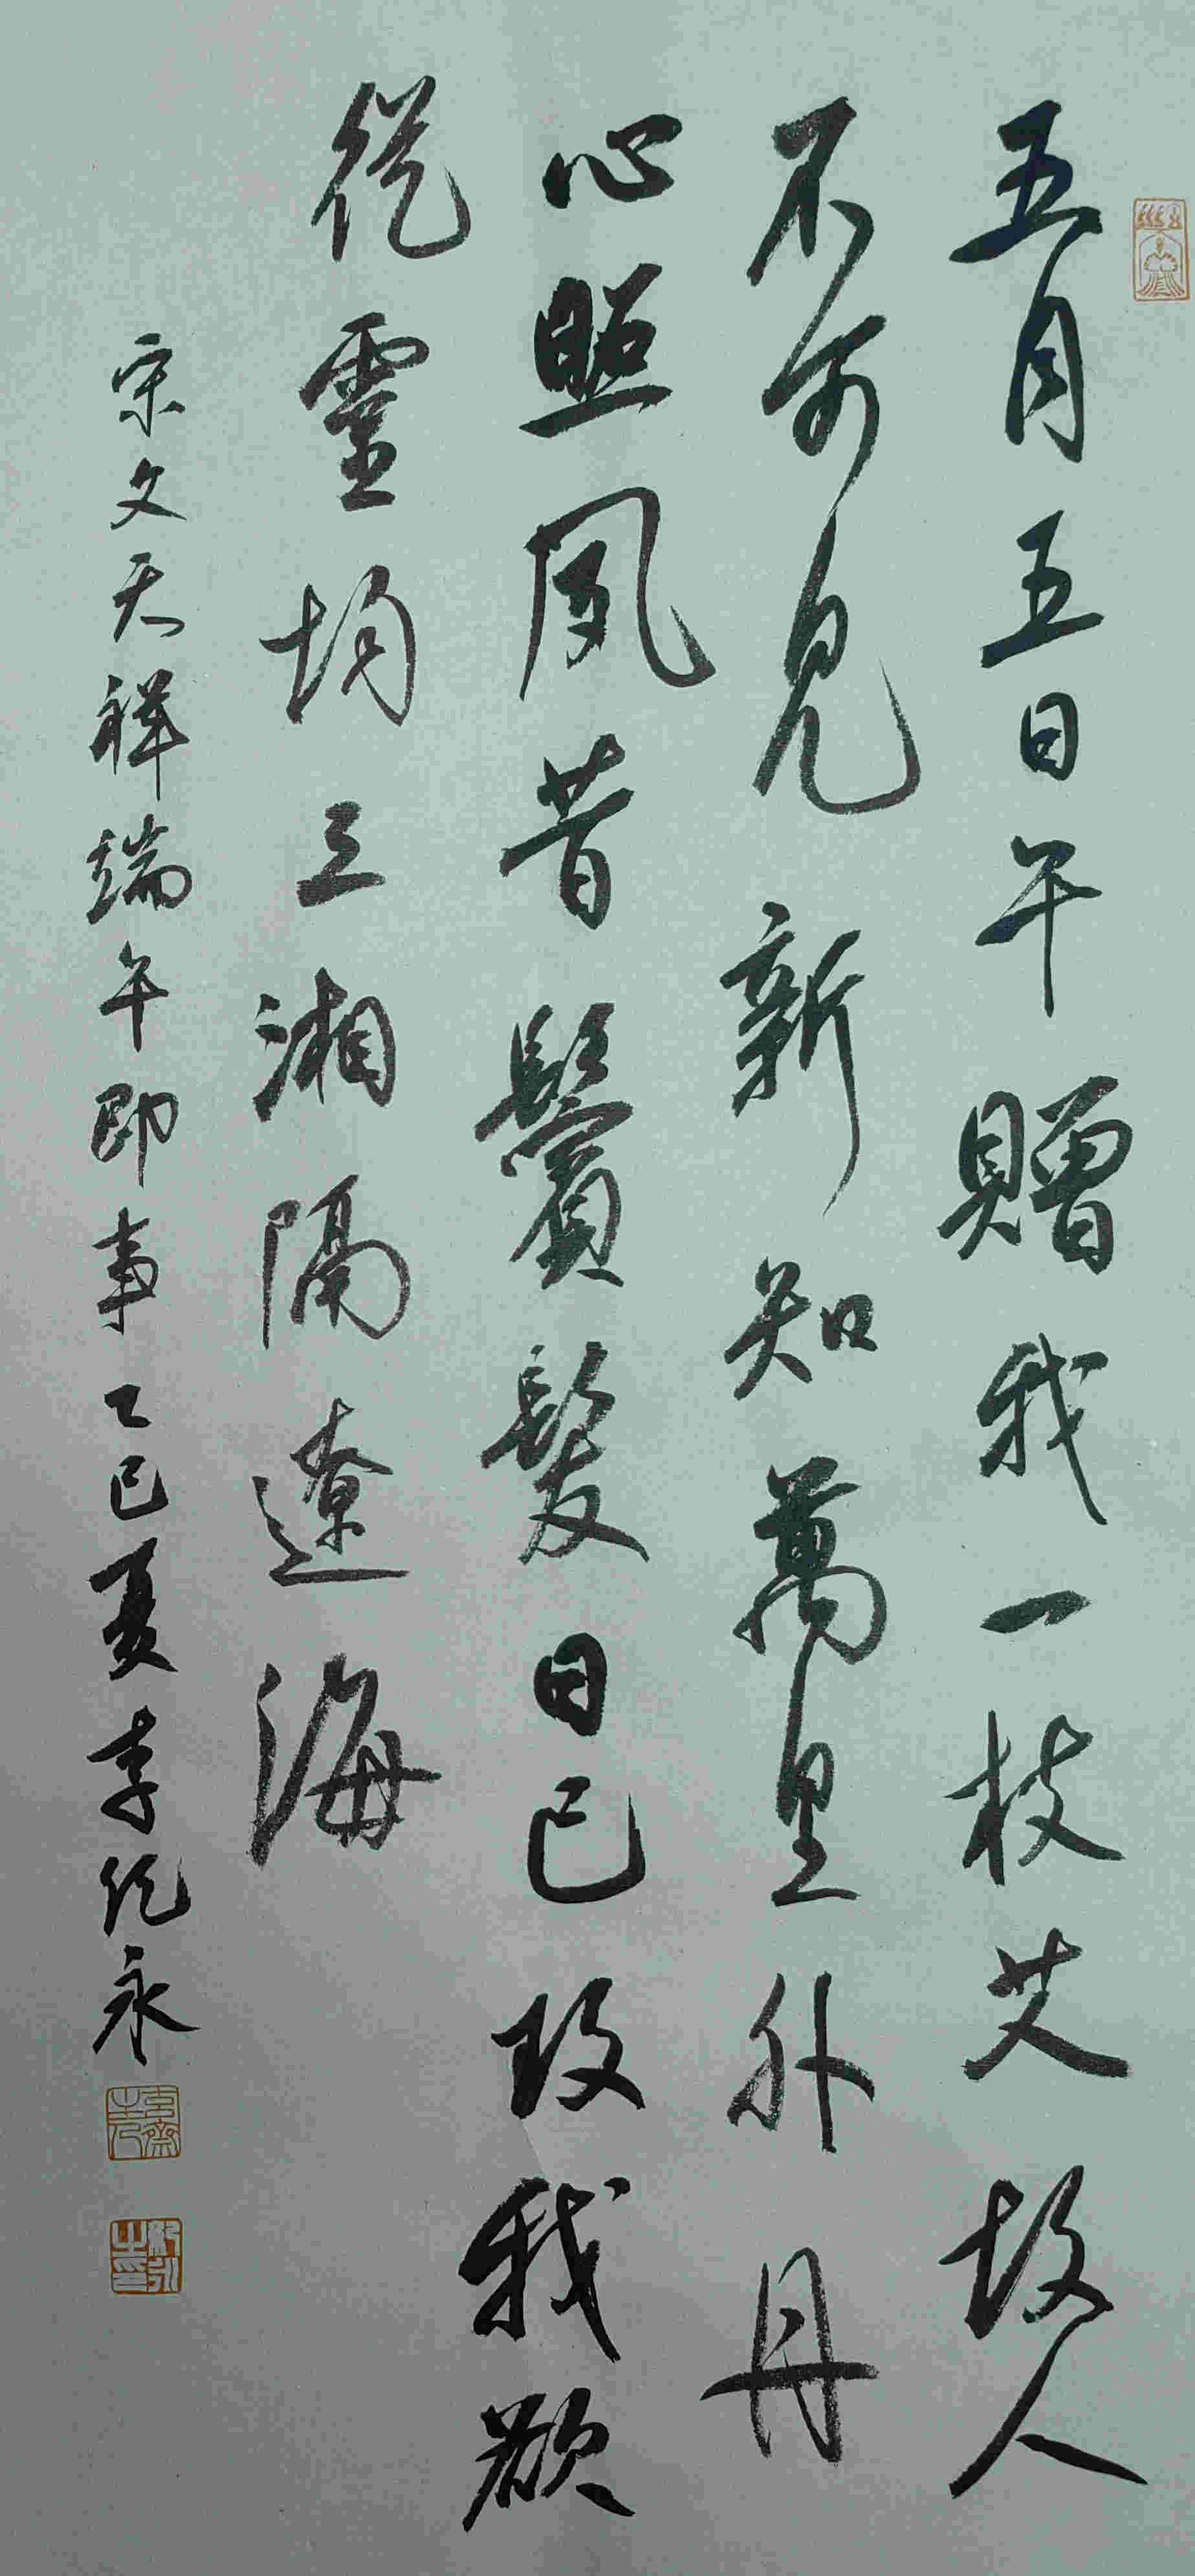 五月五日午贈我一枝艾故人
不可見新知萬里外丹
心照夙昔鬢髮日已改我欲
從靈均三湘隔遼海
宋文天祥端午即事乙巳夏李紀永